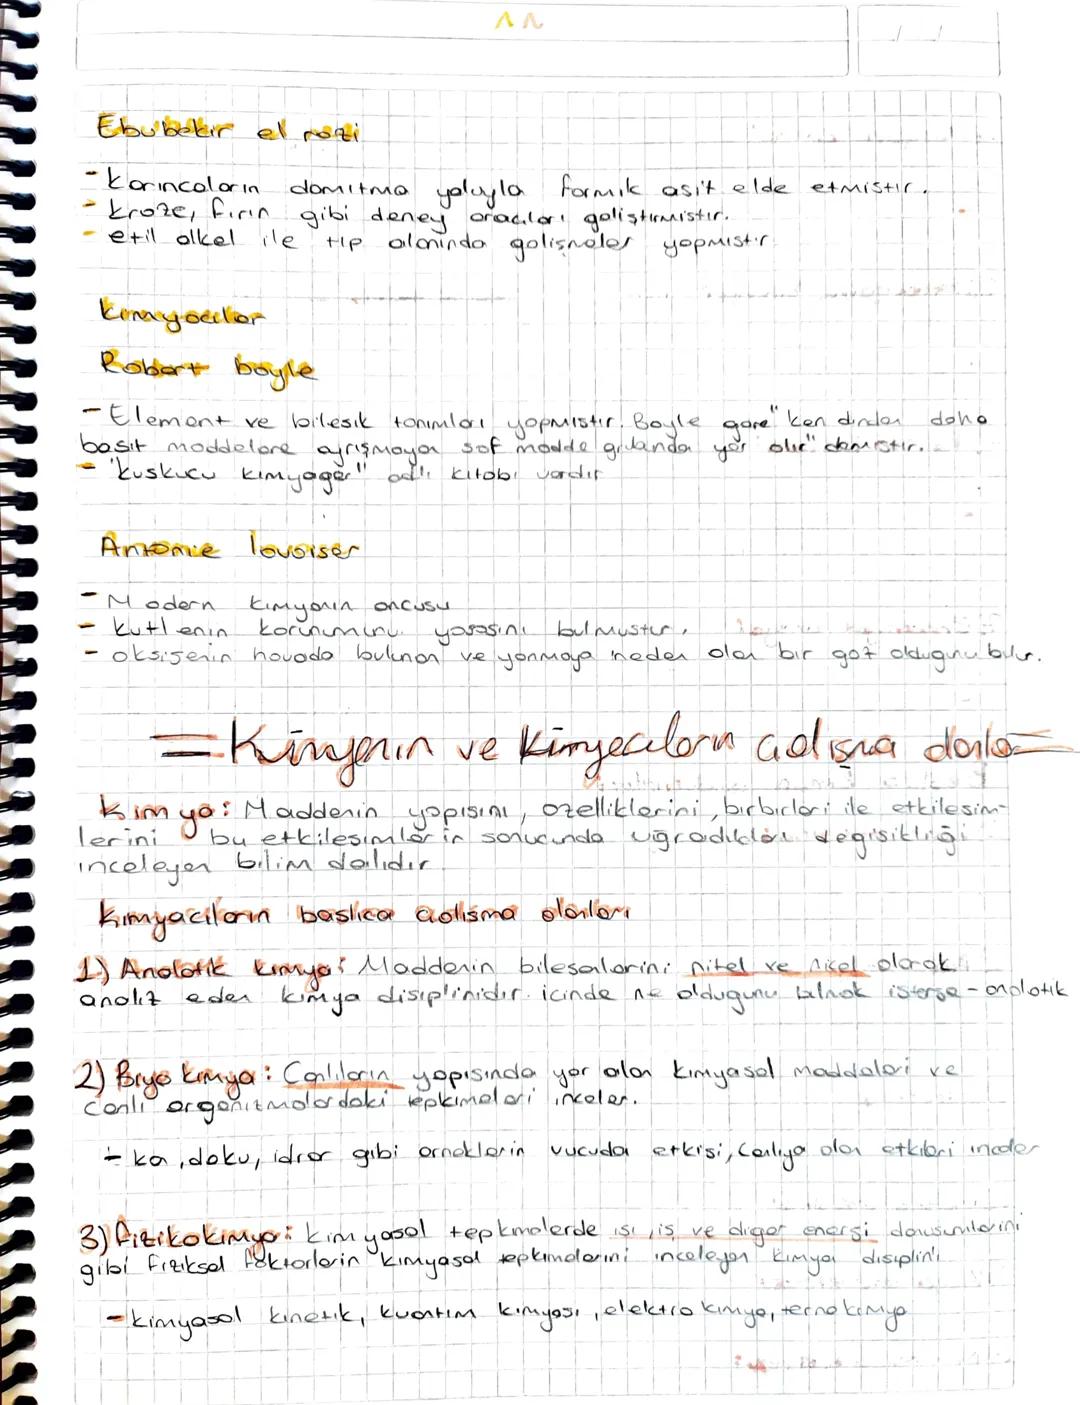 Ebubekir el razi
- Karıncaların damıtma yoluyla formik asit elde etmistir.
- kroze, fırın gibi deney aracıları geliştirmistir.
- etil alkel ile tıp alanında gelişmeler yapmıstır
Kimyacılar
Robert boyle
- Element ve bilesik tanımları yapmıstır. Boyle göre" kendinden daha
basit maddelere ayrışmayan saf madde yer alır" demistir.
- "kuskucu kimyager" adlı kitabı vardır
Antonie lavoiser
- Modern kimyanın oncusu
- kutlenin korunumunu yasasını bulmustur.
- oksijenin havada bulunan ve yanmaya neden olan bir gaz oldugunu bulur.
= Kimyanın ve kimyacıların çalışma =
Kimya: Maddenin yapısını, özelliklerini, birbirleri ile etkilesim-
lerini bu etkilesimlerin sonucunda uğradıkları degisikliği
inceleyen bilim dalıdır
Kimyacıların baslıca çalısma alanları
1) Analatik kimya: Maddenin bilesenlerini nitel ve nicel olarak
analiz eden kimya disiplinidir. icinde ne oldugunu bilmek isterse - analatik
2) Biyo kimya: Canlıların yapısında yer alan kimyasal maddeleri ve
canlı organizmalardaki tepkimeleri inceler.
- ka, doku, idrar gibi orneklerin vucuda etkisi, canlıya olan etkileri inceler
3) fizikokimya: kimyasal tepkmelerde ısı, iş ve diger enerji donusumlerini
gibi fiziksel faktorlerin kimyasal tepkimelerini inceleyen kimya disiplini
- kimyasal kinetik, kuantım kimyası, elektro kimya, termo kimya